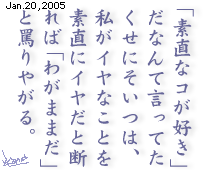 Jan.20,2005
「素直なコが好き」
だなんて言ってた
くせにそいつは、
私がイヤなことを
素直にイヤだと断
れば「わがままだ」
と罵りやがる。